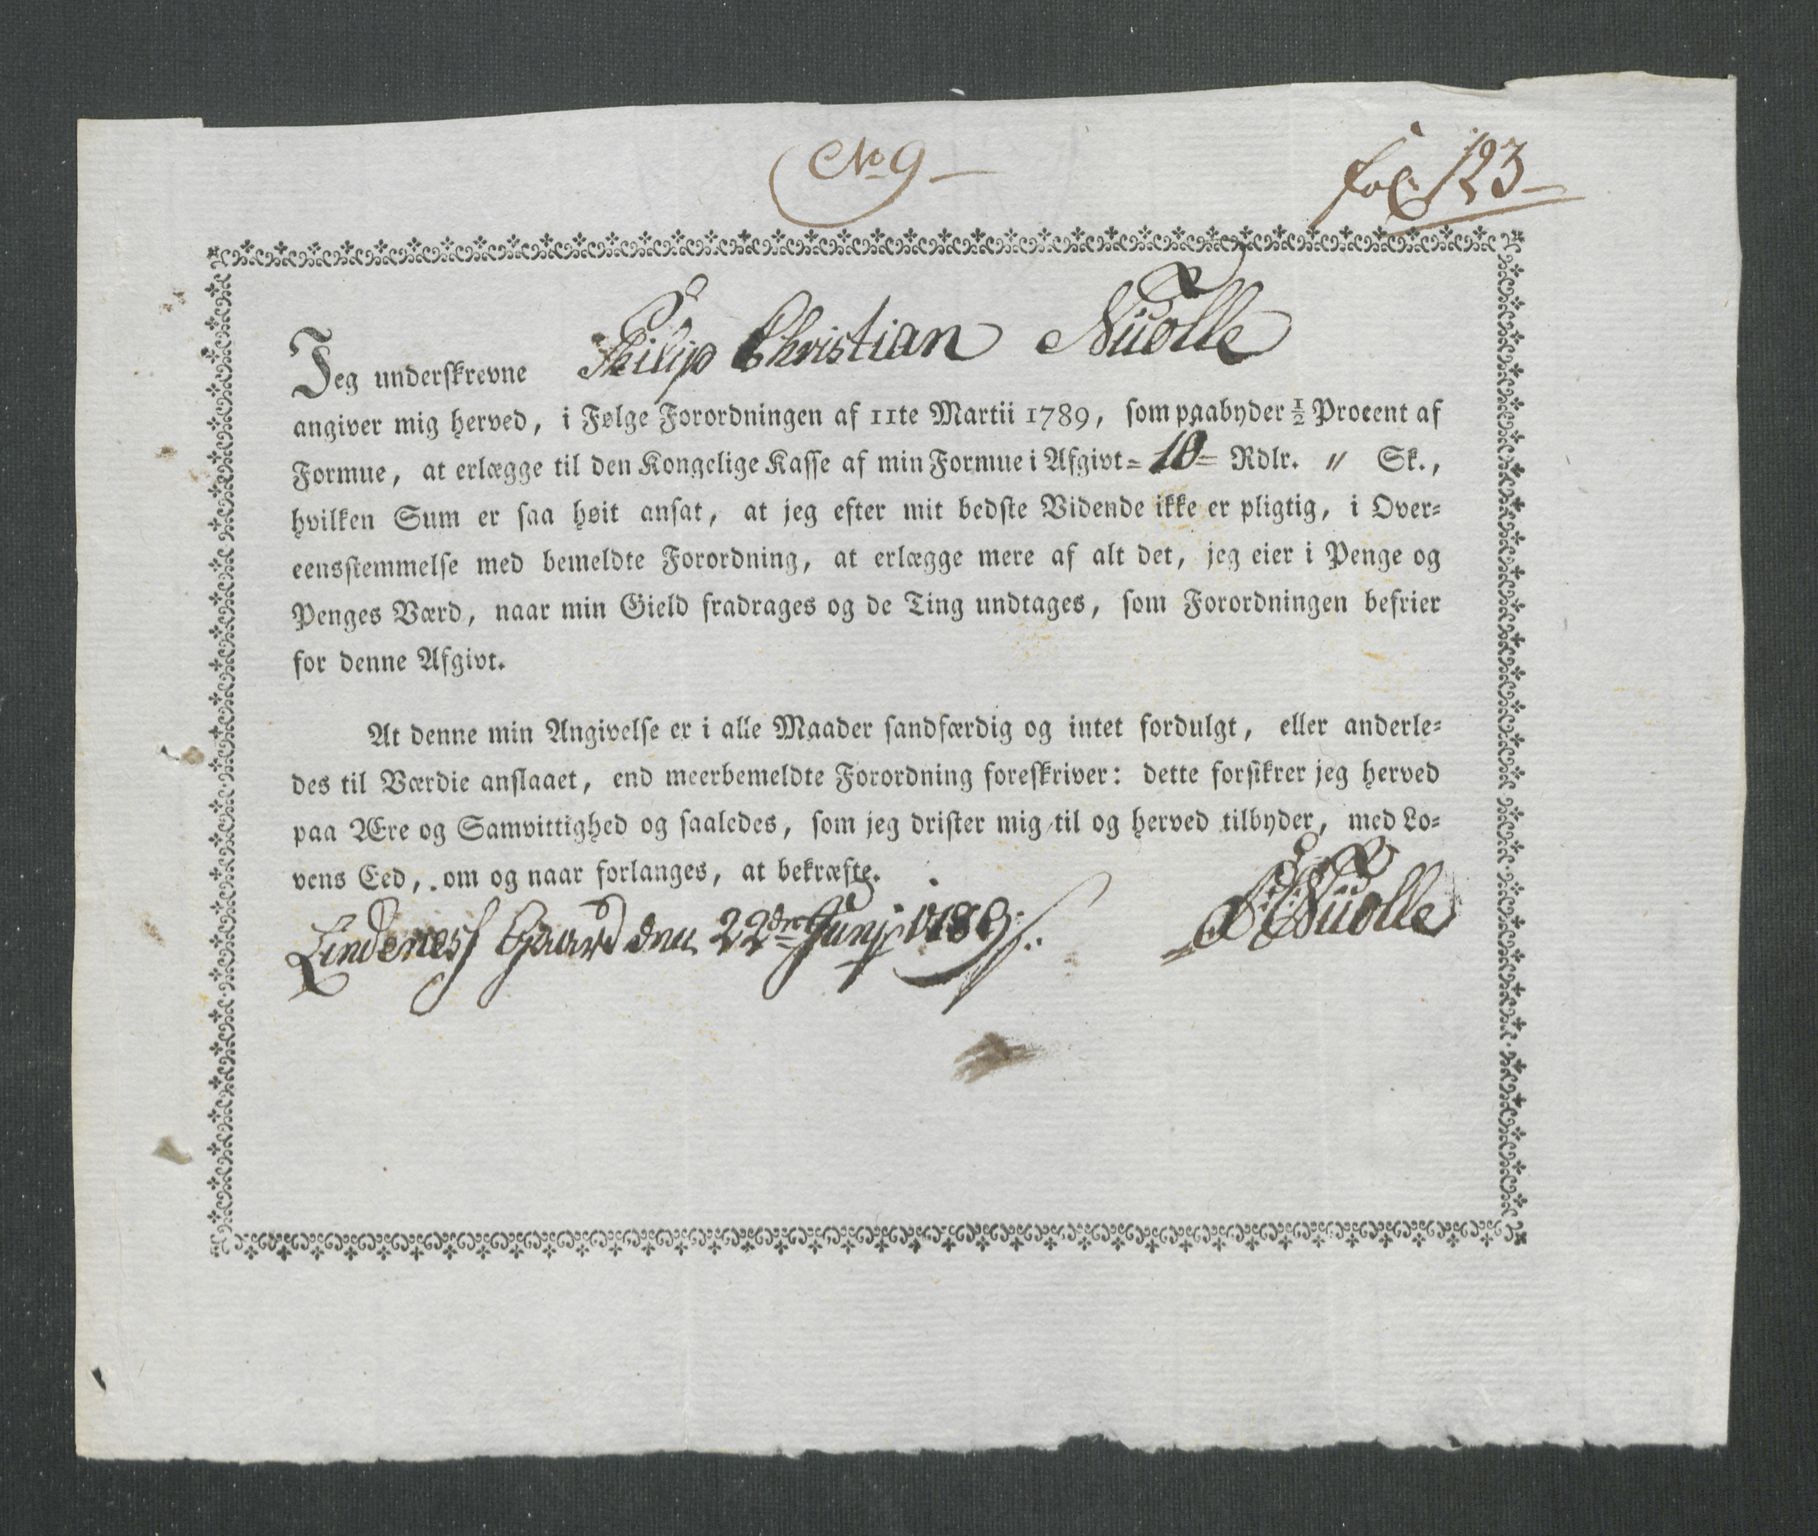 No 9
fol: 123
Jeg underskrevne Philip Christian Nüolle
angiver mig herved, i Følge Forordningen af 11te Martii 1789, som paabyder 1/2 Procent af
Formue, at erlægge til den Kongelige Kasse af min Formue i Afgivt = 10 = Rdlr. " Sk.,
hvilken Sum er saa høit ansat, at jeg efter mit bedste Vidende ikke er pligtig, i Over=
eensstemmelse med bemeldte Forordning, at erlægge mere af alt det, jeg eier i Penge og
Penges Værd, naar min Gield fradrages og de Ting undtages, som Forordningen befrier
for denne Afgivt.
At denne min Angivelse er i alle Maader sandfærdig og intet fordulgt, eller anderle=
des til Værdie anslaaet, end meerbemeldte Forordning foreskriver: dette forsikrer jeg herved
paa Ære og Samvittighed og saaledes, som jeg drister mig til og herved tilbyder, med Lo=
vens Eed, om og naar forlanges, at bekræfte.
Lindenæss Gaard den 22de Junj 1789.
P: C: Nüolle